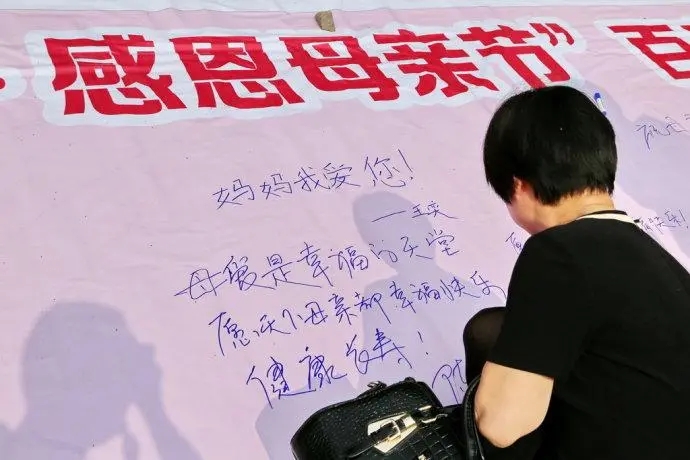 感恩母亲节” 百
妈妈我爱您!
—王奕
母爱是幸福的天堂
愿天下母亲都幸福快乐
健康长寿!